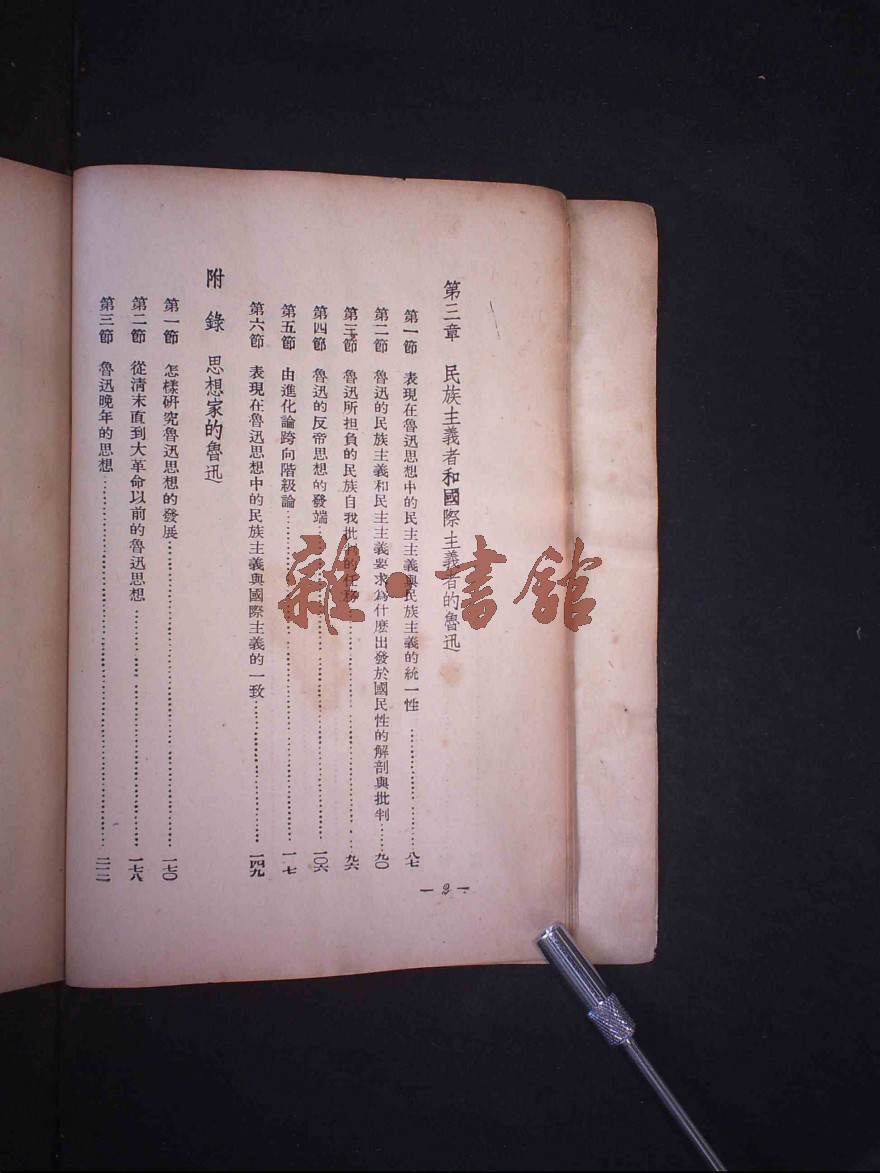 第三章 民族主義者和國際主義者的魯迅
第一節 表現在魯迅思想中的民主主義與民族主義的統一性……八七
第二節 魯迅的民族主義和民主主義要求為什麼出發於國民性的解剖與批判……九〇
第三節 魯迅所担負的民族自我批判的任務……九六
第四節 魯迅的反帝思想的發端……一〇六
第五節 由進化論跨向階級論……一一七
第六節 表現在魯迅思想中的民族主義與國際主義的一致……一四九
附錄 思想家的魯迅
第一節 怎樣研究魯迅思想的發展……一七〇
第二節 從清末直到大革命以前的魯迅思想……一七八
第三節 魯迅晚年的思想……二一二
— 2 —
雜·書館